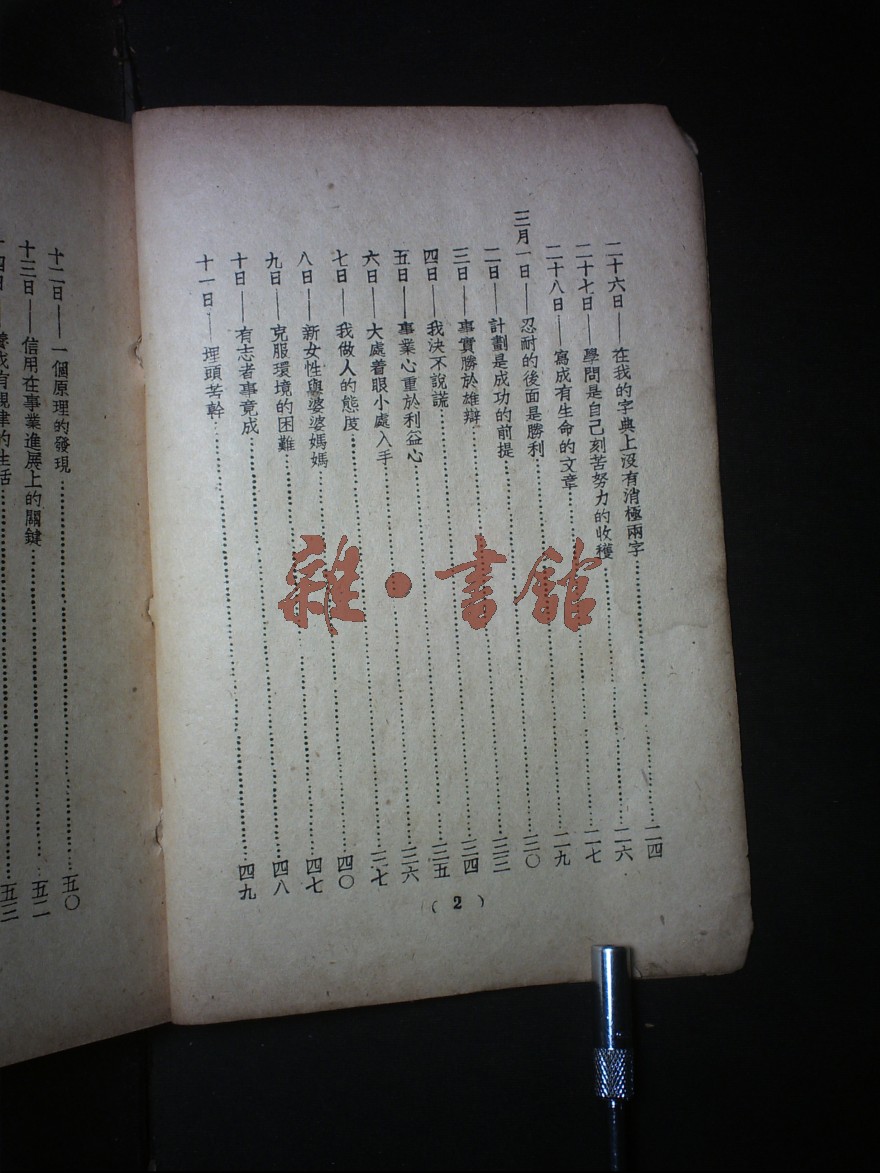 二十六日——在我的字典上沒有消極兩字……二四
二十七日——學問是自己刻苦努力的收穫……二六
二十八日——寫成有生命的文章……二七
三月一日——忍耐的後面是勝利……二九
二日——計劃是成功的前提……三〇
三日——事實勝於雄辯……
四日——我決不說謊……三四
五日——事業心重於利益心……三五
六日——大處着眼小處入手……三六
七日——我做人的態度……
八日——新女性與婆婆媽媽……四〇
九日——克服環境的困難……四七
十日——有志者事竟成……四八
十一日——埋頭苦幹……四九
( 2 )
十二日——一個原理的發現……五〇
十三日——信用在事業進展上的關鍵……五二
十四日——養成有規律的生活……
雜·書館